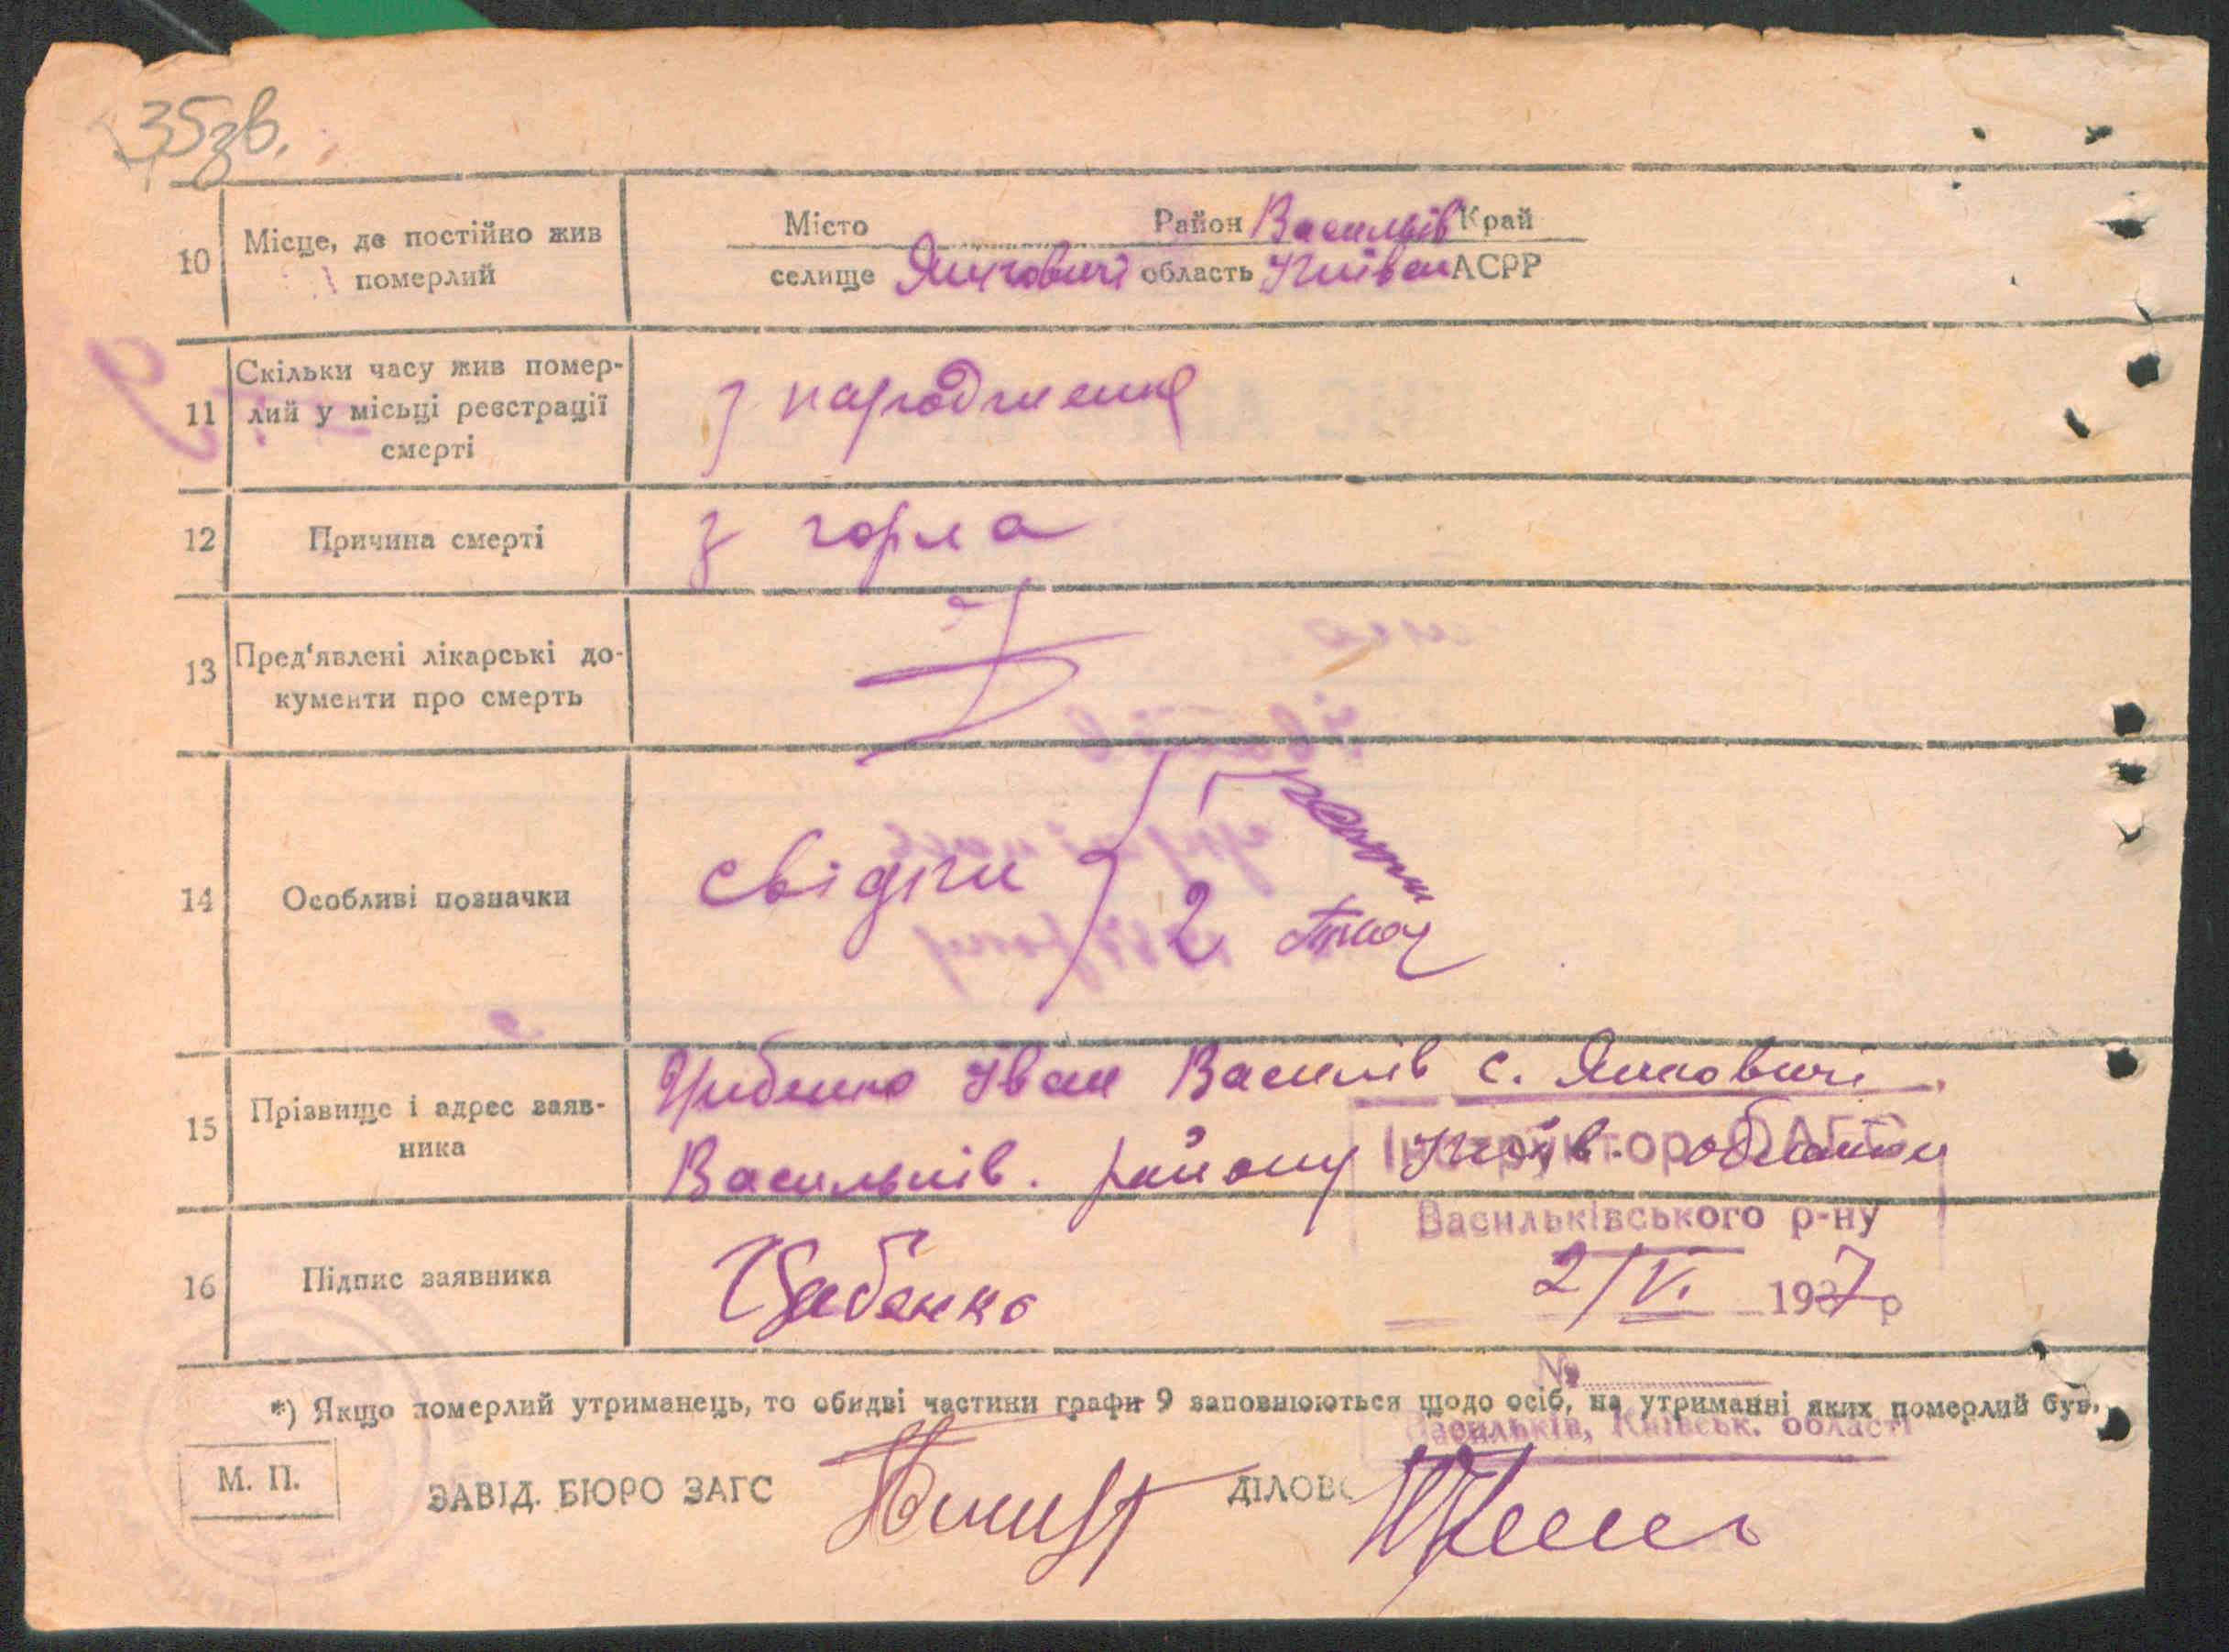 35зв.
10
Місце, де постійно жив
померлий
Місто Район Васильків Край
селище Янковичі область Київськ АСРР
11
Скільки часу жив помер-
лий у місьці реєстрації
смерті
з народження
12
Причина смерті
з горла
13
Пред'явлені лікарські до-
кументи про смерть
14
Особливі позначки
свідки
2
15
Прізвище і адрес заяв-
ника
Цибенко Іван Василів с. Янковичі
Васильків. району Київ. області
Інспектор ОАГС
Васильківського р-ну
16
Підпис заявника
Цибенко
2/VI. 1937р
№
Васильків, Київськ. області
*) Якщо померлий утриманець, то обидві частини графи 9 заповнюються щодо осіб, на утриманні яких померлий був.
М. П.
ЗАВІД. БЮРО ЗАГС ДІЛОВО